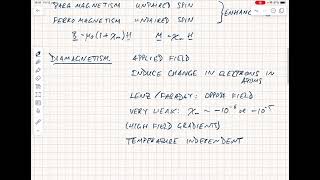 PARA MAGNETISM UNPAIRED SPIN
FERRO MAGNETISM UNPAIRED SPIN } ENHANC
B = μ₀(1+χₘ)H M = χₘ H
DIAMAGNETISM APPLIED FIELD
INDUCE CHANGE IN ELECTRONS IN ATOMS
LENZ/FARADAY: OPPOSE FIELD
VERY WEAK: χₘ ~ -10⁻⁶ or -10⁻⁵
(HIGH FIELD GRADIENTS)
TEMPERATURE INDEPENDENT